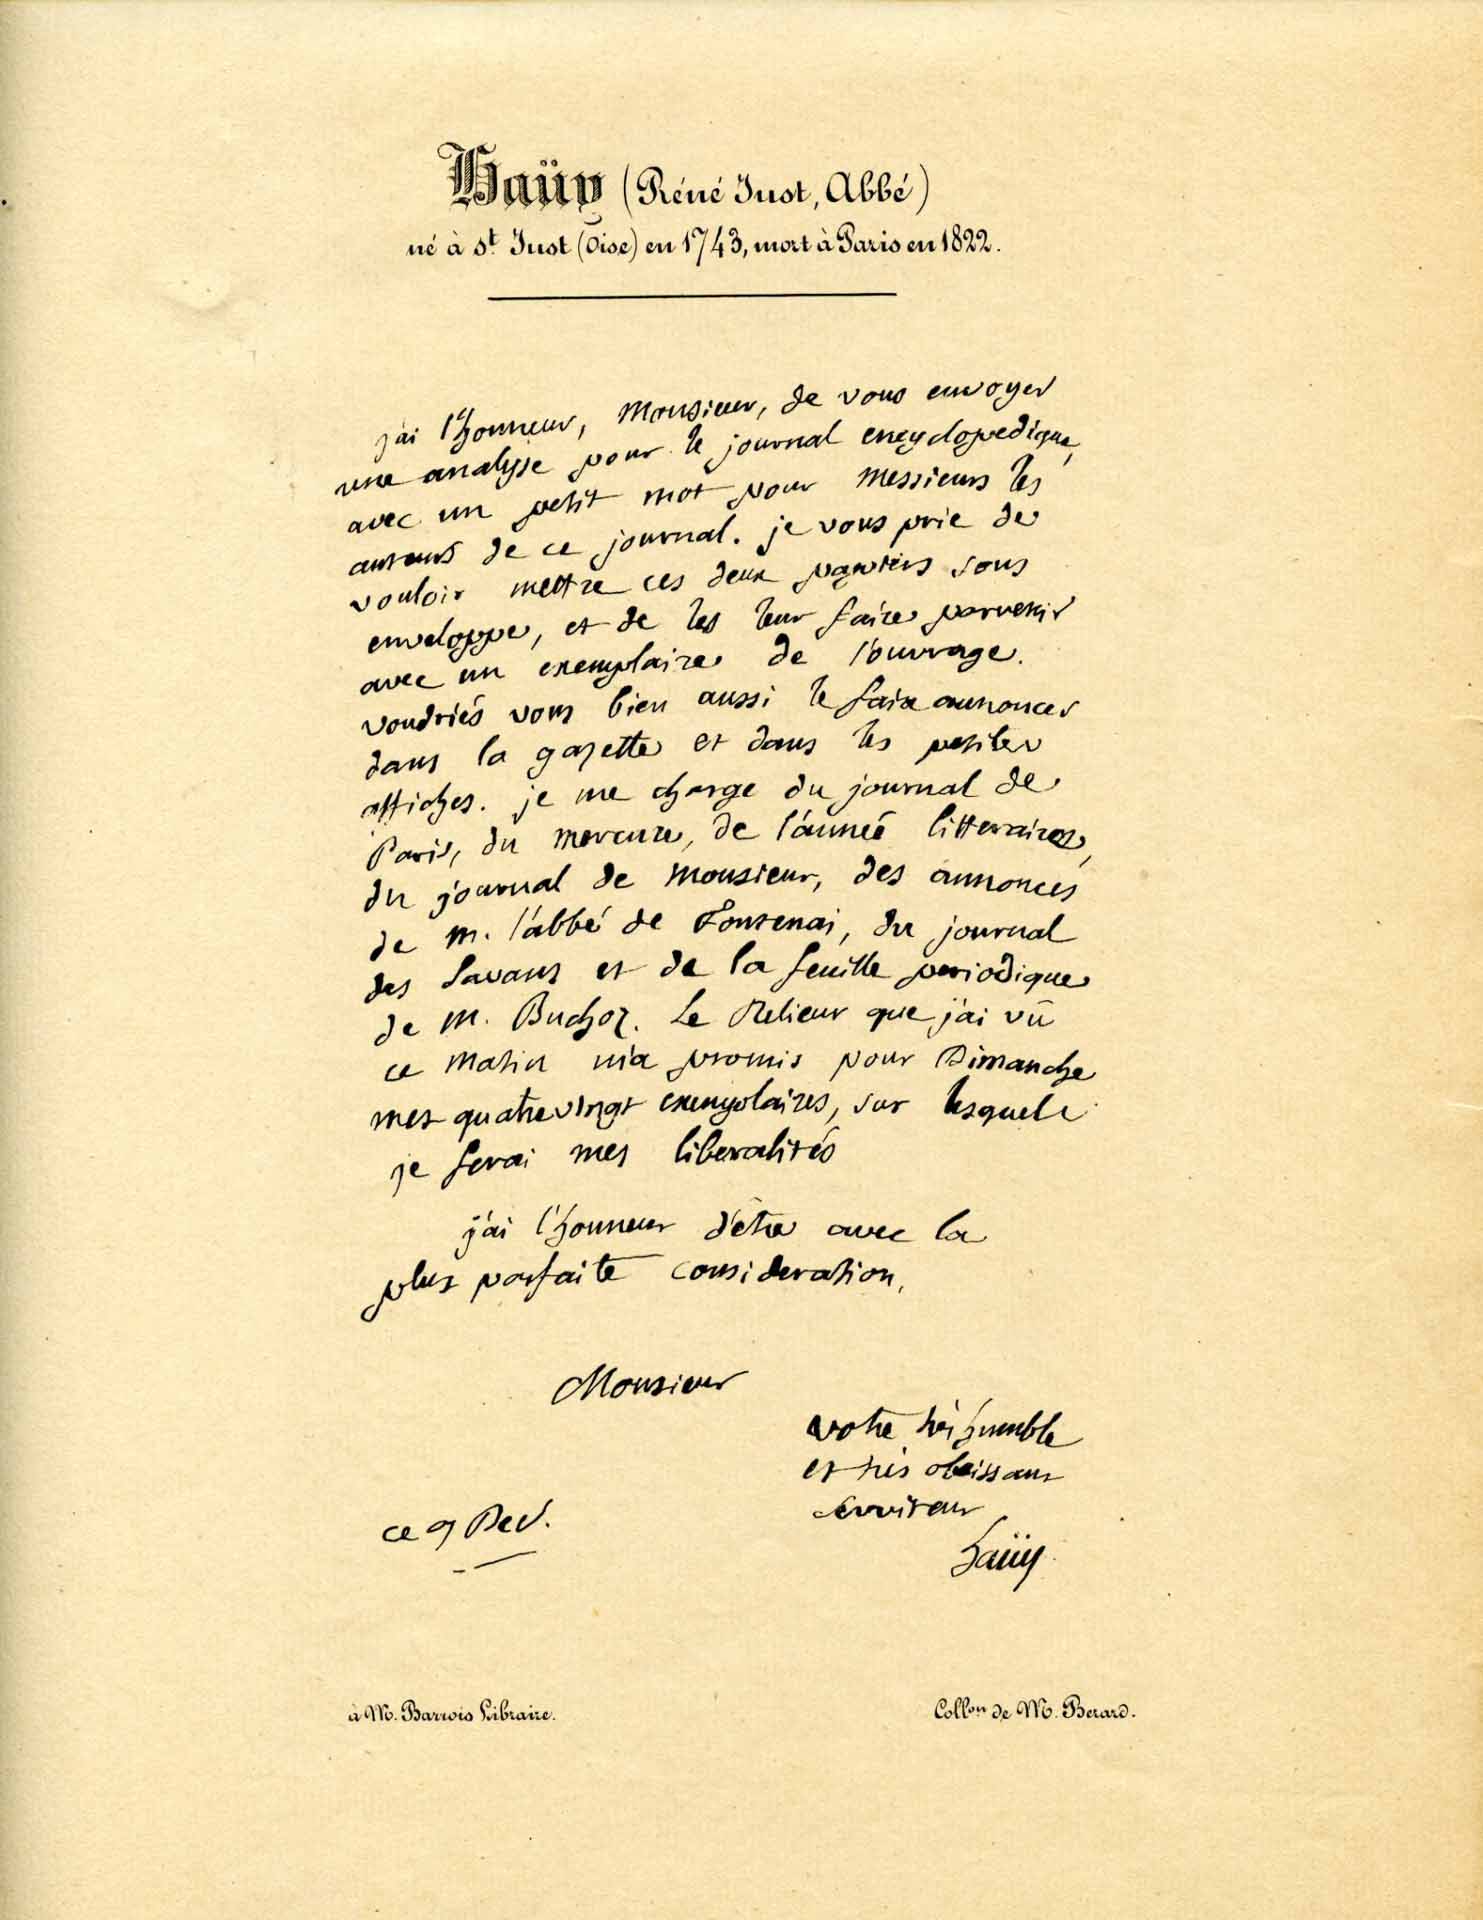 Haüy (Réné Just, Abbé)
né à St. Just (Oise) en 1743, mort à Paris en 1822.
j'ai l'honneur, Monsieur, de vous envoyer
une analyse pour le journal encyclopedique,
avec un petit mot pour messieurs les
auteurs de ce journal. je vous prie de
vouloir mettre ces deux papiers sous
enveloppe, et de les leur faire parvenir
avec un exemplaire de l'ouvrage.
voudriés vous bien aussi le faire annoncer
dans la gazette et dans les petites
affiches. je me charge du journal de
Paris, du mercure, de l'année litteraire,
du journal de monsieur, des annonces
de m. l'abbé de Fontenai, du journal
des Savans et de la feuille periodique
de m. Buchoz. Le Relieur que j'ai vû
ce matin m'a promis pour Dimanche
mes quatre vingt exemplaires, sur lesquels
je ferai mes liberalités
j'ai l'honneur d'être avec la
plus parfaite consideration,
Monsieur
votre très humble
et très obeissant
serviteur
ce 9 Dec.
haüy.
à M. Barrois Libraire.
Collon de M. Berard.